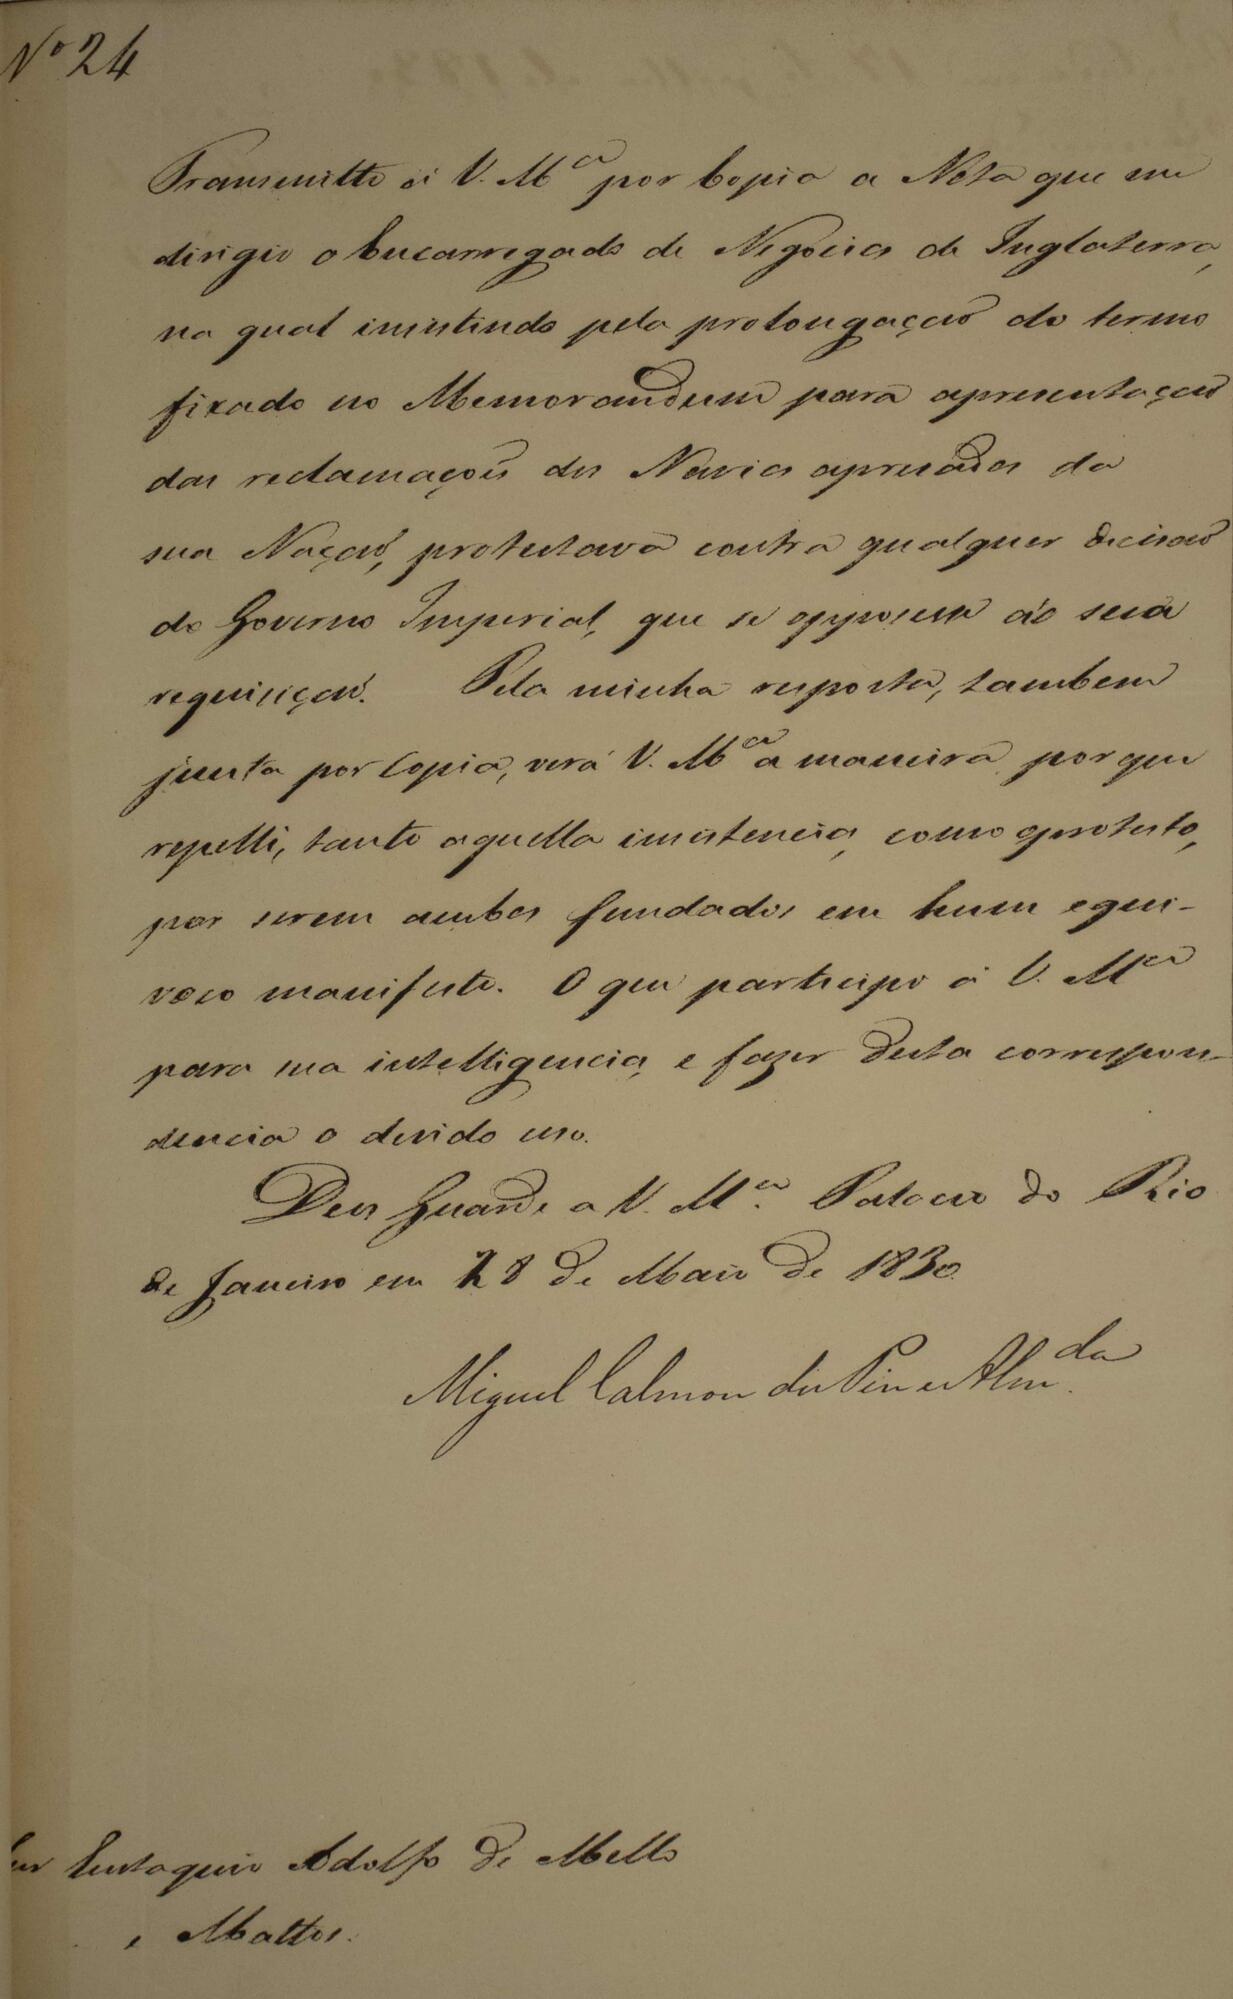 Nº 24
Transmitto á V. M.ce por Copia a Nota que me
dirigio o Encarregado de Negocios de Inglaterra,
na qual insistindo pela prolongação do termo
fixado no Memorandum para apresentação
das reclamações dos Navios apresados da
sua Nação, protestava contra qualquer decisão
do Governo Imperial, que se oppozesse áo seu
requisição. Pela minha resposta, tambem
junta por Copia, verá V. M.ce a maneira porque
repelli, tanto aquella insistencia, como o protesto,
por serem ambos fundados em hum equi-
voco manifesto. O que participo á V. M.ce
para sua intelligencia, e fazer desta correspon-
dencia o devido uso.
Deos Guarde a V. M.ce Palacio do Rio
de Janeiro em 28 de Maio de 1830
Miguel Calmon du Pin e Alm.da
Eustaquio Adolfo de Mello
e Mattos.